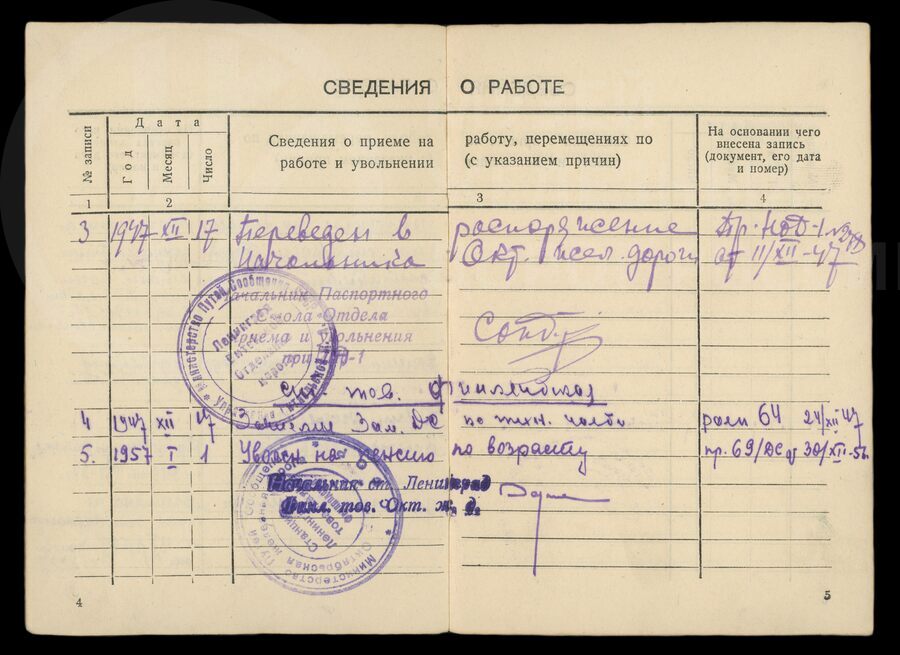 СВЕДЕНИЯ О РАБОТЕ
№ записи
Дата
Год
Месяц
Число
Сведения о приеме на работу, перемещениях по
работе и увольнении (с указанием причин)
На основании чего
внесена запись
(документ, его дата
и номер)
1 2 3 4
3 1947 XII 17 Переведен в распоряжение Пр. НОД-1 №
Начальника Окт. жел. дороги от 11/XII-47
Начальник Паспортного
Стола Отдела
Приема и увольнения
при НОД-1
Ст. тов. Финляндская
4 1947 XII 17 Зам. ДС по техн. части 64 24/XII 47
5. 1957 I 1 Уволен на пенсию по возрасту пр. 69/ДС от 30/XII-56
Начальник ст. Ленинград
Финл. тов. Окт. ж. д.
Министерство Путей Сообщения
Министерство Путей Сообщения
Октябрьская железная дорога
Станция
4
5